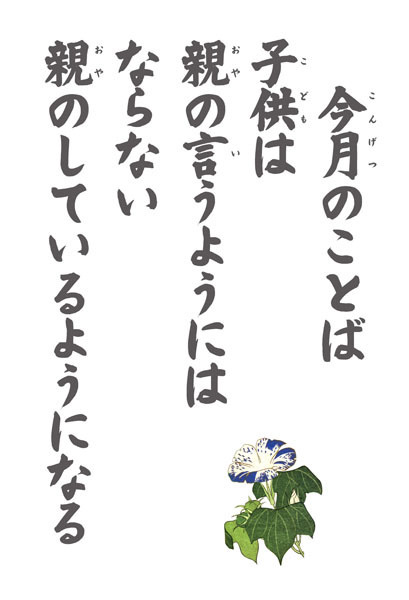 今月のことば
子供は
親の言うようには
ならない
親のしているようになる